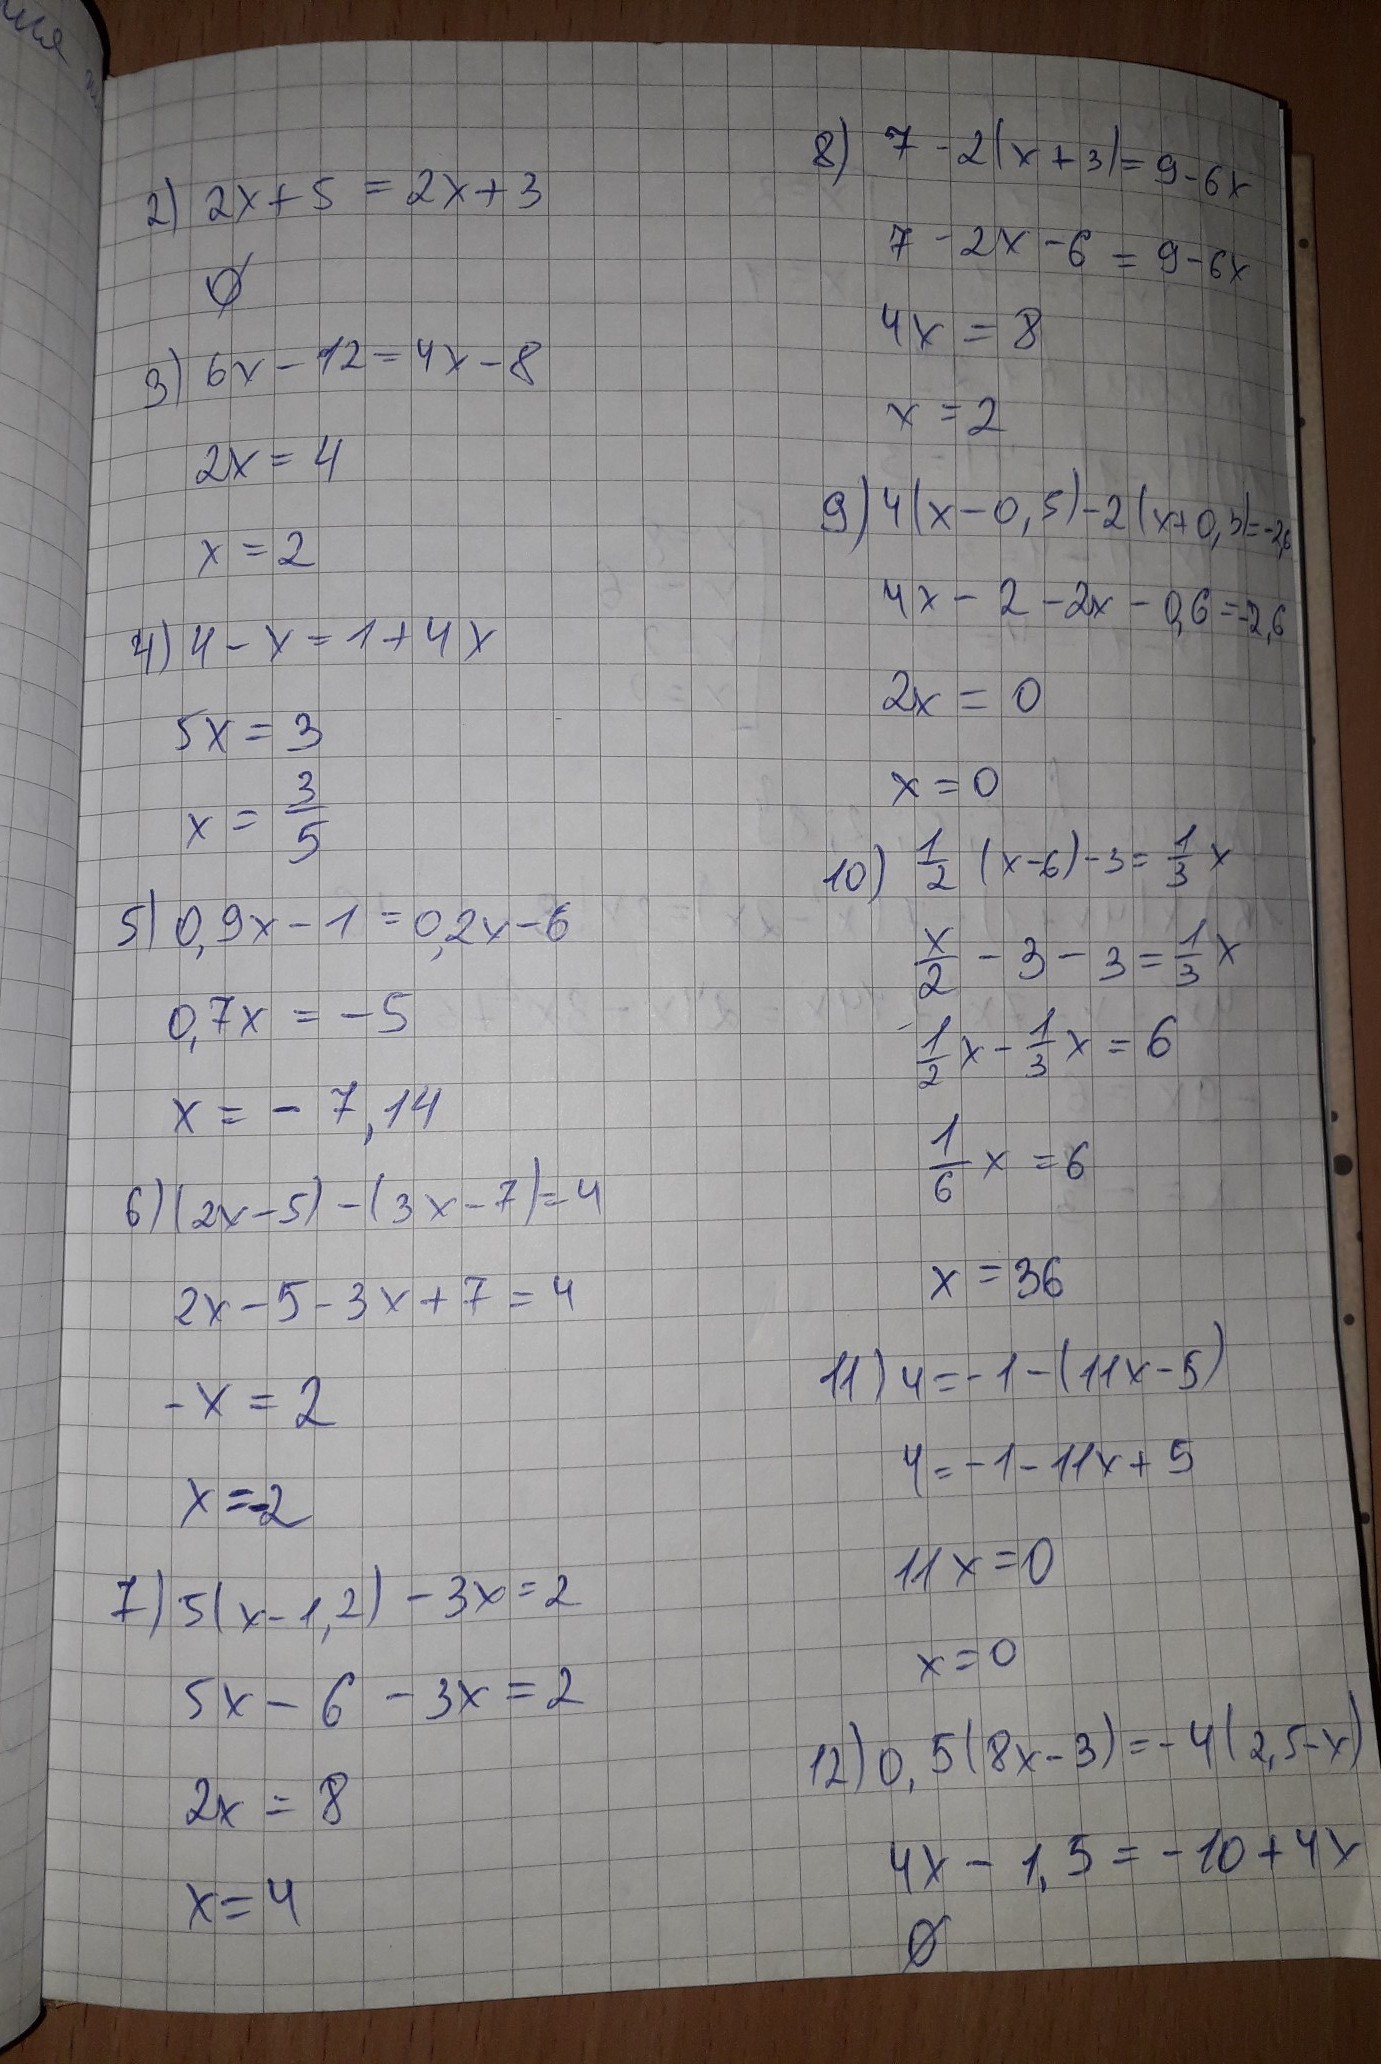 2) 2x+5 = 2x+3
∅
3) 6x - 12 = 4x - 8
2x = 4
x = 2
4) 4 - x = 1 + 4x
5x = 3
x = 3/5
5) 0,9x - 1 = 0,2x - 6
0,7x = -5
x = - 7,14
6) (2x-5) - (3x-7) = 4
2x - 5 - 3x + 7 = 4
-x = 2
x = -2
7) 5(x-1,2) - 3x = 2
5x - 6 - 3x = 2
2x = 8
x = 4
8) 7 - 2(x+3) = 9-6x
7 - 2x - 6 = 9-6x
4x = 8
x = 2
9) 4(x-0,5) - 2(x+0,3) = -2,6
4x - 2 - 2x - 0,6 = -2,6
2x = 0
x = 0
10) 1/2 (x-6) - 3 = 1/3 x
x/2 - 3 - 3 = 1/3 x
1/2 x - 1/3 x = 6
1/6 x = 6
x = 36
11) 4 = -1 - (11x-5)
4 = -1 - 11x + 5
11x = 0
x = 0
12) 0,5(8x-3) = -4(2,5-x)
4x - 1,5 = -10 + 4x
∅